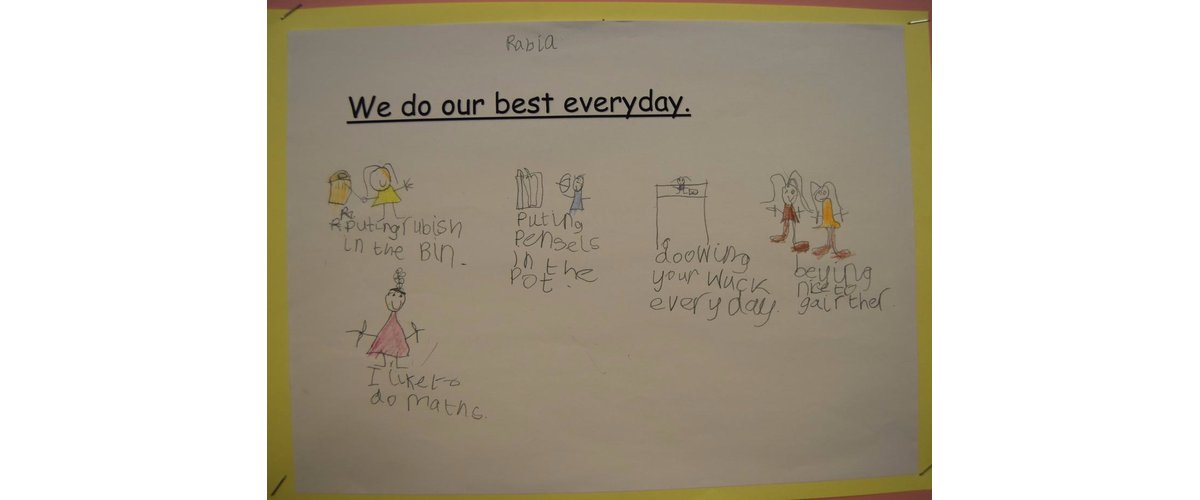 Rabia
We do our best everyday.
puting rubish
in the Bin.
puting
pensels
in the
pot.
doowing
your wuck
every day.
beying
nice to
gairther.
I like to
do maths.